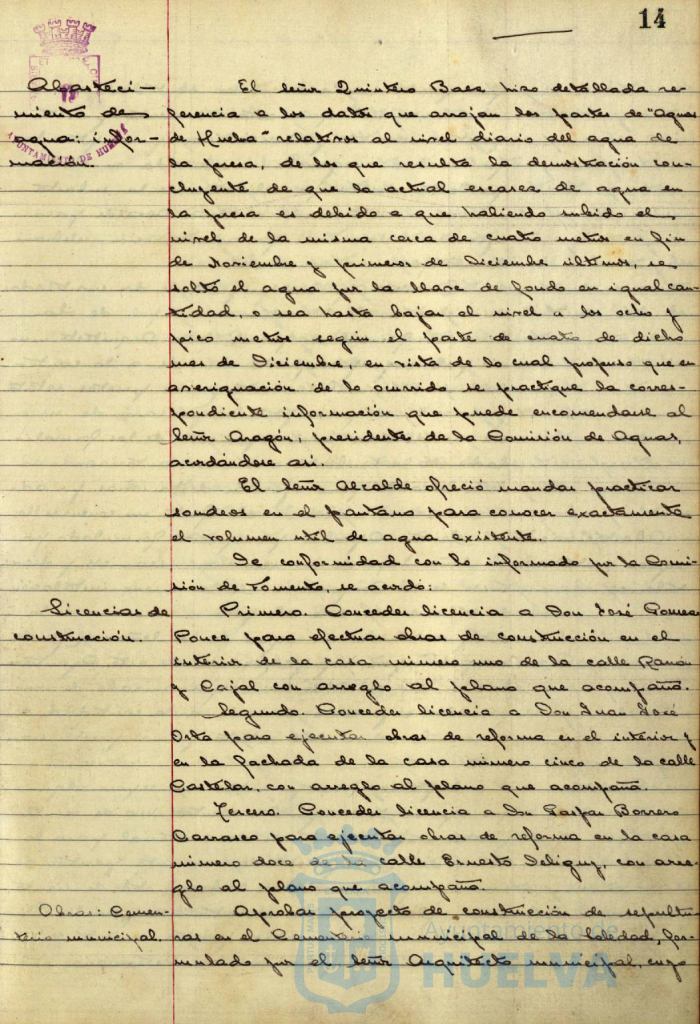 14
Abasteci-
miento de
agua: infor-
mación.
AYUNTAMIENTO DE HUELVA
El señor Quintero Baez hizo detallada re-
ferencia a los datos que arrojan los partes de "Aguas
de Huelva" relativos al nivel diario del agua de
la presa, de los que resulta la demostración con-
cluyente de que la actual escasez de agua en
la presa es debido a que habiendo subido el
nivel de la misma cerca de cuatro metros en fin
de Noviembre y primeros de Diciembre últimos, se
soltó el agua por la llave de fondo en igual can-
tidad, o sea hasta bajar el nivel a los ocho y
pico metros según el parte de cuatro de dicho
mes de Diciembre, en vista de lo cual propuso que en
averiguación de lo ocurrido se practique la corres-
pondiente información que puede encomendarse al
Señor Aragón, presidente de la Comisión de Aguas,
acordándose así.
El Señor Alcalde ofreció mandar practicar
sondeos en el pantano para conocer exactamente
el volumen util de agua existente.
De conformidad con lo informado por la Comi-
sión de Fomento, se acordó:
Licencias de
construcción.
Primero. Conceder licencia a Don José Gomez
Ponce para efectuar obras de construcción en el
interior de la casa número uno de la calle Ramón
y Cajal con arreglo al plano que acompaña.
Segundo. Conceder licencia a Don Juan José
Orta para ejecutar obras de reforma en el interior y
en la fachada de la casa número cinco de la calle
Castelar, con arreglo al plano que acompaña.
Tercero. Conceder licencia a Don Gaspar Borrero
Carrasco para ejecutar obras de reforma en la casa
número doce de la calle Ernesto Deligny, con arre-
glo al plano que acompaña.
Obras: Cemen-
terio municipal.
Aprobar proyecto de construcción de sepultu-
ras en el Cementerio municipal de la Soledad, for-
mulado por el Señor Arquitecto municipal, cuyo
Ayuntamiento de
HUELVA